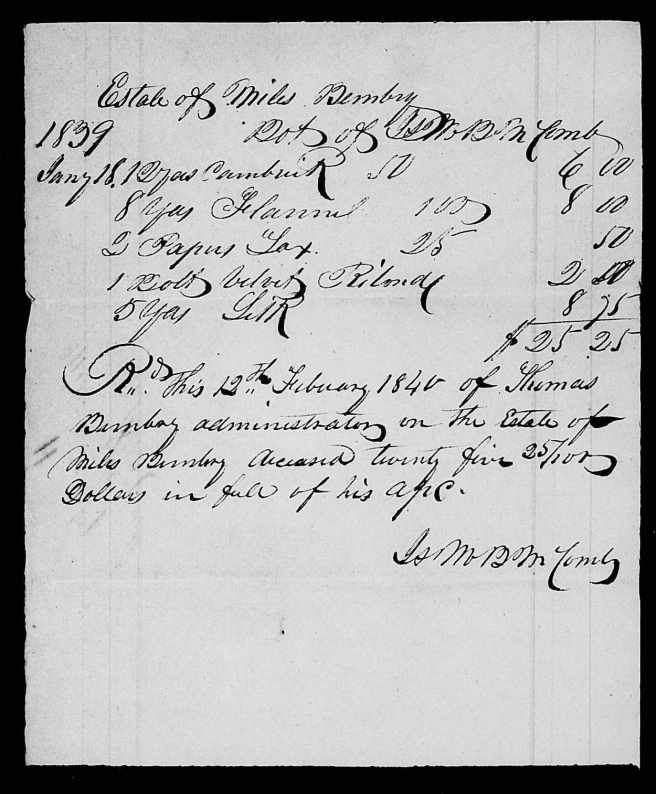 Estate of Miles Bembry
1839 Bot of Js W B McComb
Jany 18. 12 yds Cambrick 50 6 00
8 yds Flannel 100 8 00
2 Papers Tax. 25 50
1 Bolt velvet Riband 2 00
5 yds Silk 8 75
$ 25 25
Rd. this 12th February 1840 of Thomas
Bembry administrator on the Estate of
Miles Bembry deceased twenty five 25/100
Dollars in full of his apc.
Js W B McComb